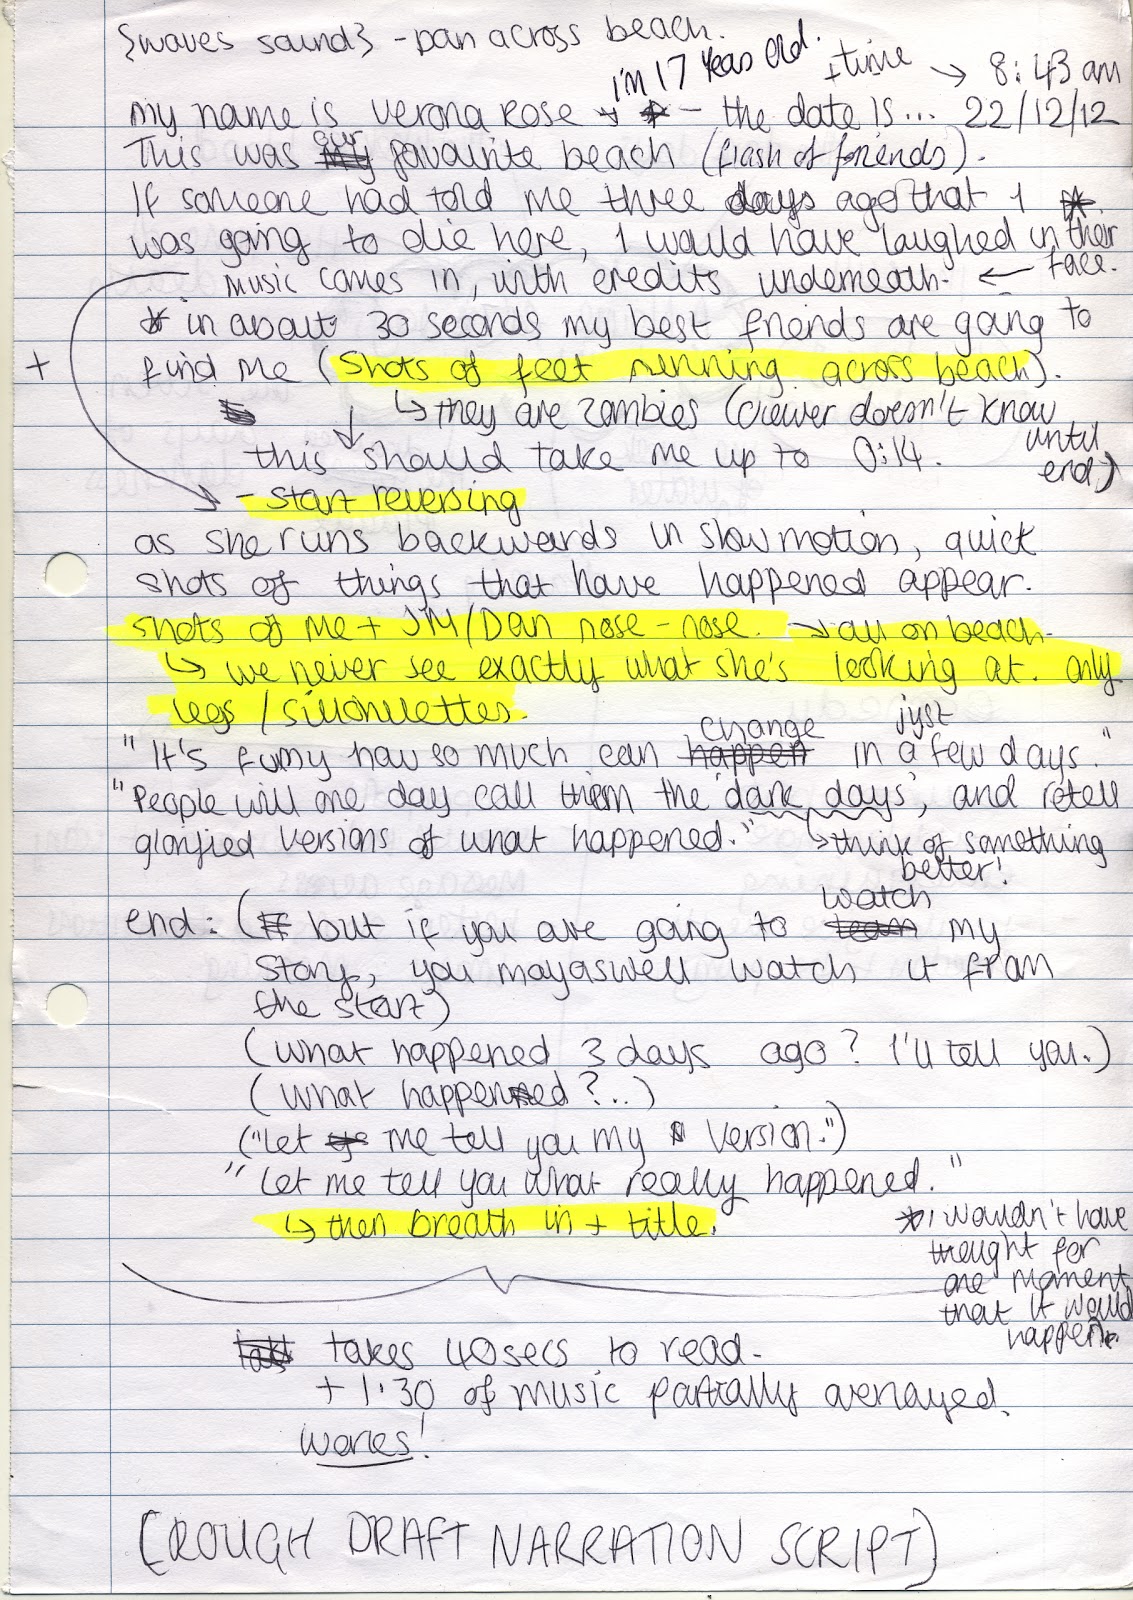 {waves sound} - pan across beach.
I'm 17 years old. + time → 8:43 am
my name is Verona Rose - the date is... 22/12/12
This was our favourite beach (flash of friends).
If someone had told me three days ago that I
was going to die here, I would have laughed in their
face.
music comes in, with credits underneath. ←
* in about 30 seconds my best friends are going to
+ find me (Shots of feet running across beach).
↳ they are zombies (viewer doesn't know
until
end.)
↓ this should take me up to 0:14.
- start reversing
as she runs backwards in slow motion, quick
shots of things that have happened appear.
shots of me + JM/Dan nose-nose. → all on beach.
↳ we never see exactly what she's looking at. only
legs / sillohuettes.
change just
"It's funny how so much can happen in a few days."
"People will one day call them the 'dark days', and retell
glorified versions of what happened." ↳ think of something
better!
watch
end: (but if you are going to learn my
story, you mayaswell watch it from
the start)
(what happened 3 days ago? I'll tell you.)
(what happened?..)
("Let me tell you my version.")
"Let me tell you what really happened."
↳ then breath in + title.
* I wouldn't have
thought for
one moment
that it would
happen.
takes 40secs to read.
+ 1:30 of music partially overlayed.
works!
(ROUGH DRAFT NARRATION SCRIPT)